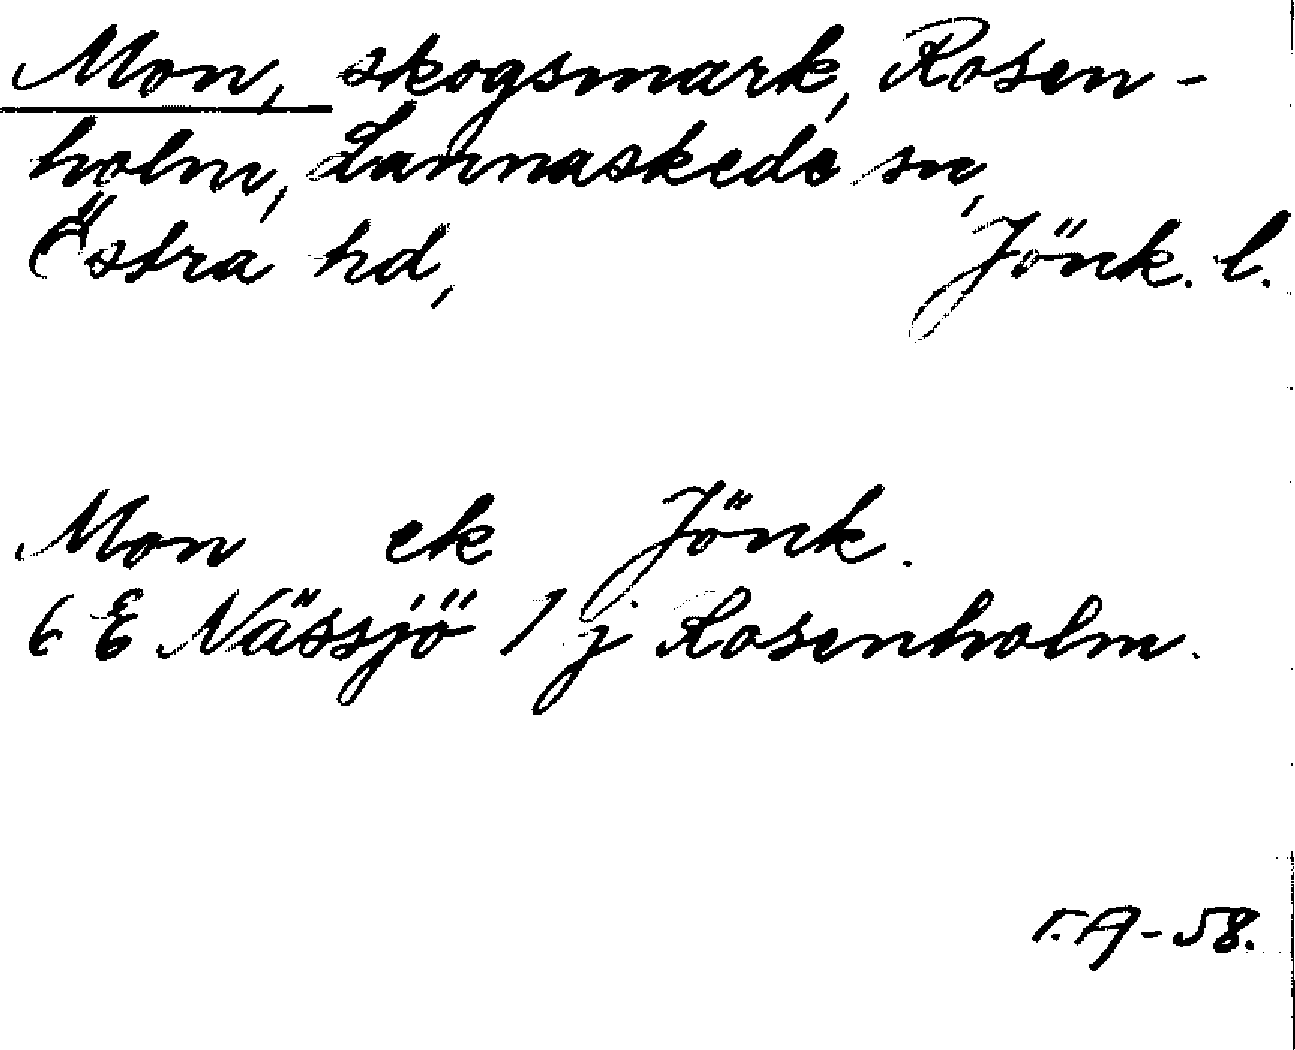 Mon, skogsmark, Rosen-
holm, Lannaskede sn,
Östra hd, Jönk. l.
Mon ek Jönk.
6 E Nässjö 1 j Rosenholm.
-58.